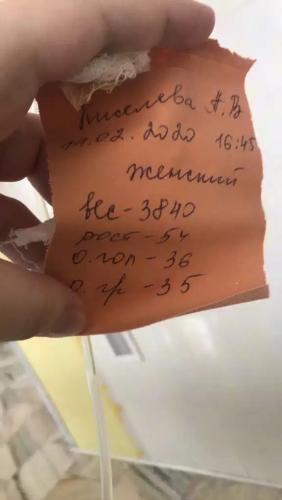 Киселева А.В
11.02.2020 16:45
женский
вес-3840
рост-54
О.гол-36
О.гр-35